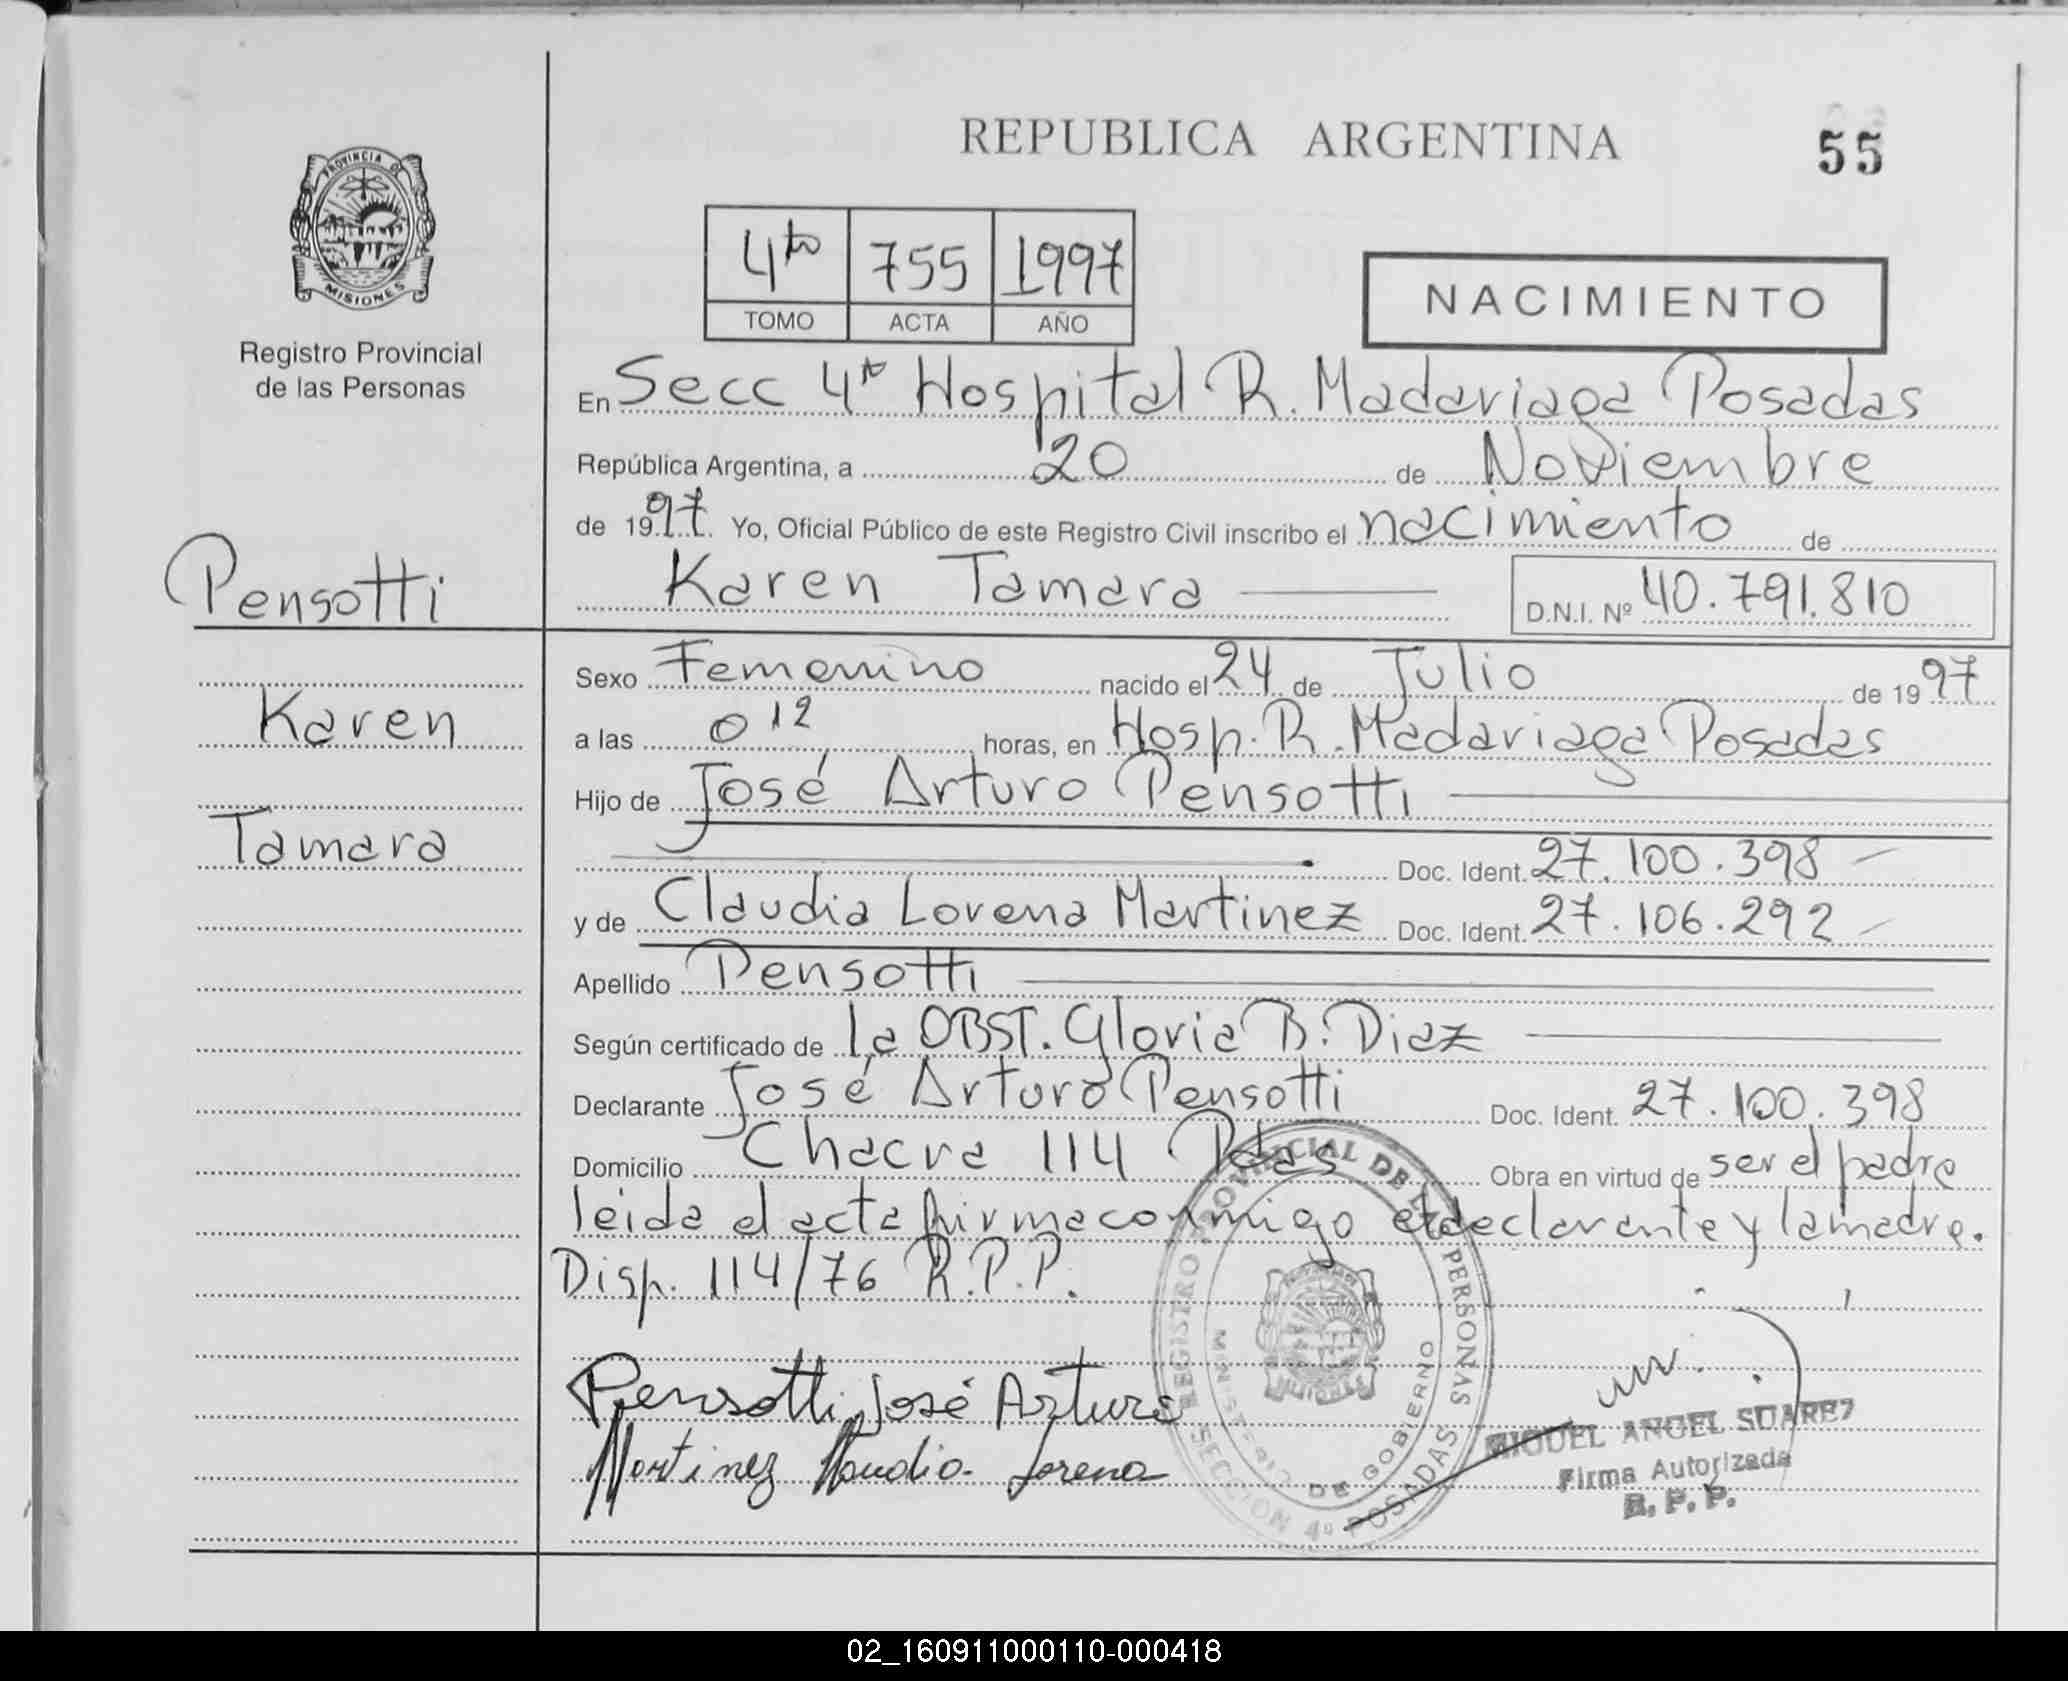 REPUBLICA ARGENTINA
55
PROVINCIA DE
MISIONES
Registro Provincial
de las Personas
4to 755 1997
TOMO ACTA AÑO
NACIMIENTO
En Secc 4ta Hospital R. Madariaga Posadas
República Argentina, a 20 de Noviembre
de 1997. Yo, Oficial Público de este Registro Civil inscribo el nacimiento de
Karen Tamara
D.N.I. Nº 40.791.810
Pensotti
Karen
Tamara
Sexo Femenino nacido el 24 de Julio de 1997
a las 0 12 horas, en Hosp. R. Madariaga Posadas
Hijo de José Arturo Pensotti
Doc. Ident. 27.100.398
y de Claudia Lorena Martinez Doc. Ident. 27.106.292
Apellido Pensotti
Según certificado de la OBST. Gloria B. Diaz
Declarante José Arturo Pensotti Doc. Ident. 27.100.398
Domicilio Chacra 114 Pdas Obra en virtud de ser el padre
leida el acta firma conmigo el declarante y la madre.
Disp. 114/76 R.P.P.
Pensotti, José Arturo
Martinez Claudia Lorena
REGISTRO PROVINCIAL DE LAS PERSONAS
MINISTERIO DE GOBIERNO
SECCION 4º POSADAS
MIGUEL ANGEL SUAREZ
Firma Autorizada
R. P. P.
02_160911000110-000418